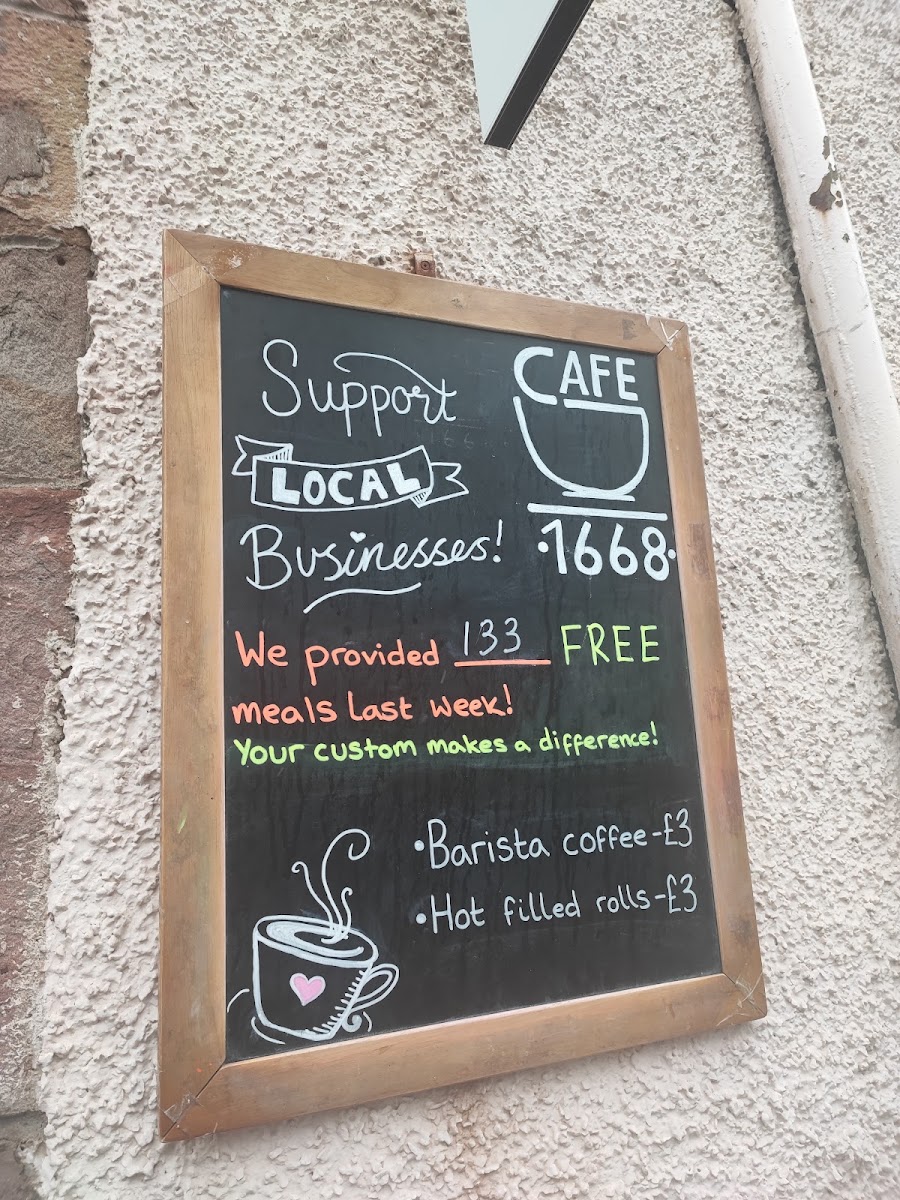 Support
LOCAL
Businesses!
CAFE
·1668·
We provided 133 FREE
meals last week!
Your custom makes a difference!
•Barista coffee-£3
•Hot filled rolls-£3